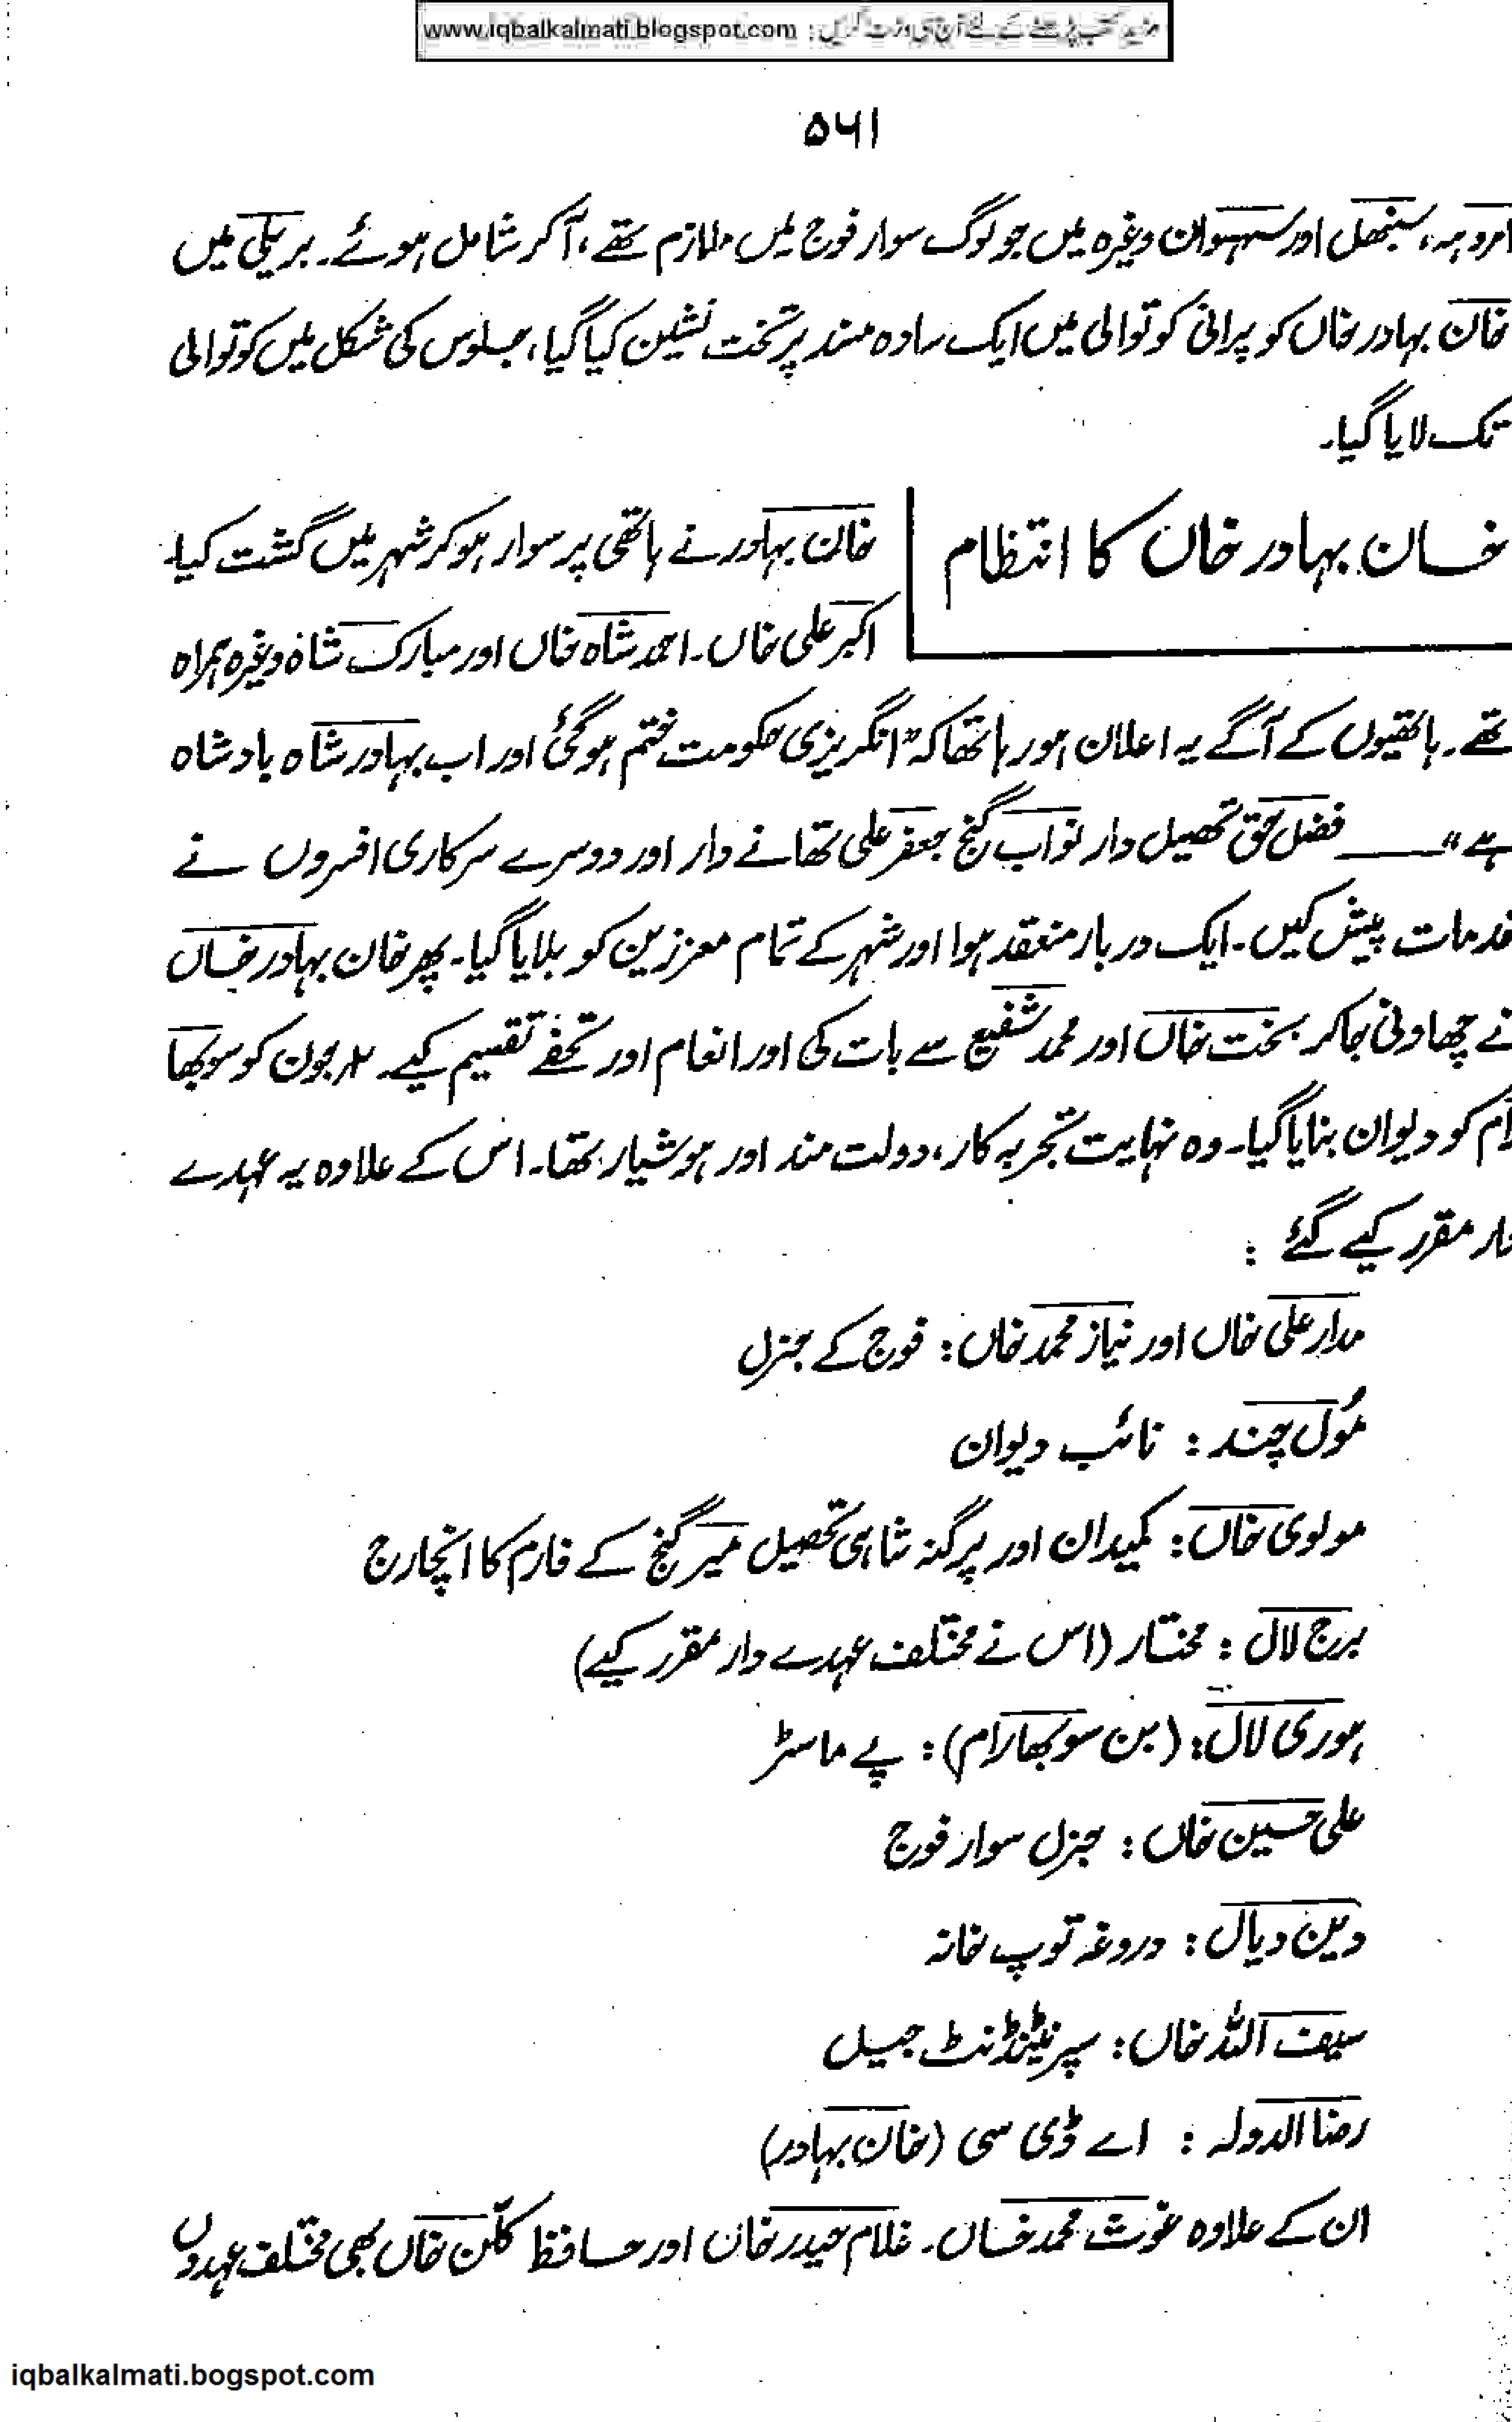 مزید کتب پڑھنے کے لئے آج ہی وزٹ کریں : www.iqbalkalmati.blogspot.com
۵۶۱
امروہہ، سنبھل اور سہسوان وغیرہ میں جو لوگ سوار فوج میں ملازم تھے، آکر شامل ہوئے۔ بریلی میں
خان بہادر خاں کو پرانی کوتوالی میں ایک سادہ مسند پر تخت نشین کیا گیا، جلوس کی شکل میں کوتوالی
تک لایا گیا۔
خان بہادر خاں کا انتظام
خان بہادر نے ہاتھی پر سوار ہو کر شہر میں گشت کیا۔
اکبر علی خاں۔ احمد شاہ خاں اور مبارک شاہ وغیرہ ہمراہ
تھے۔ ہاتھیوں کے آگے یہ اعلان ہو رہا تھا کہ "انگریزی حکومت ختم ہو گئی اور اب بہادر شاہ بادشاہ
ہے" ــــــ فضل حق تحصیل دار نواب گنج جعفر علی تھانے دار اور دوسرے سرکاری افسروں نے
خدمات پیش کیں۔ ایک دربار منعقد ہوا اور شہر کے تمام معززین کو بلایا گیا۔ پھر خان بہادر خاں
نے چھاونی جا کر بخت خاں اور محمد شفیع سے بات کی اور انعام اور تحفے تقسیم کیے۔ جون کو سوبھا
رام کو دیوان بنایا گیا۔ وہ نہایت تجربہ کار، دولت مند اور ہوشیار تھا۔ اس کے علاوہ یہ عہدے
دار مقرر کیے گئے :
مدار علی خاں اور نیاز محمد خاں : فوج کے جنرل
مُول چند : نائب دیوان
مولوی خاں : کمیدان اور پرگنہ شاہی تحصیل میر گنج کے فارم کا انچارج
برج لال : مختار (اس نے مختلف عہدے دار مقرر کیے)
ہوری لال : (بن سوبھا رام) : پے ماسٹر
علی حسین خاں : جنرل سوار فوج
دین دیال : دروغہ توپ خانہ
سیف اللہ خاں : سپرنٹنڈنٹ جیل
رضا الدولہ : اے ڈی سی (خان بہادر)
ان کے علاوہ غوث محمد خاں۔ غلام حیدر خاں اور حافظ کلّن خاں بھی مختلف عہدوں
iqbalkalmati.bogspot.com